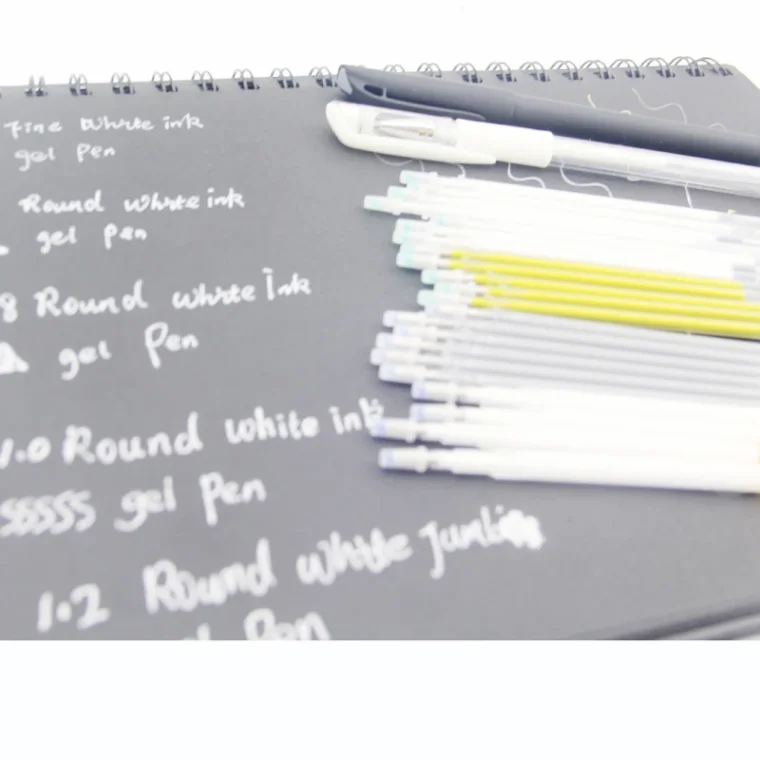 Fine White ink
gel Pen
Round white ink
gel Pen
8 Round white Ink
gel Pen
1.0 Round white ink
SSSSS gel Pen
1.2 Round white
Pen